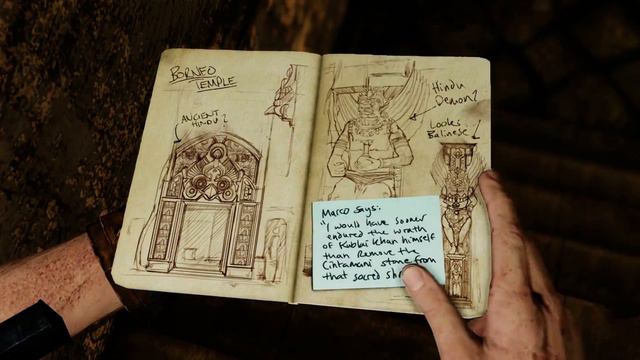 BORNEO
TEMPLE
ANCIENT
HINDU?
Hindu
Demon?
Looks
Balinese
Marco says:
"I would have sooner
endured the wrath
of Kublai Khan himself
than remove the
Cintamani stone from
that sacred